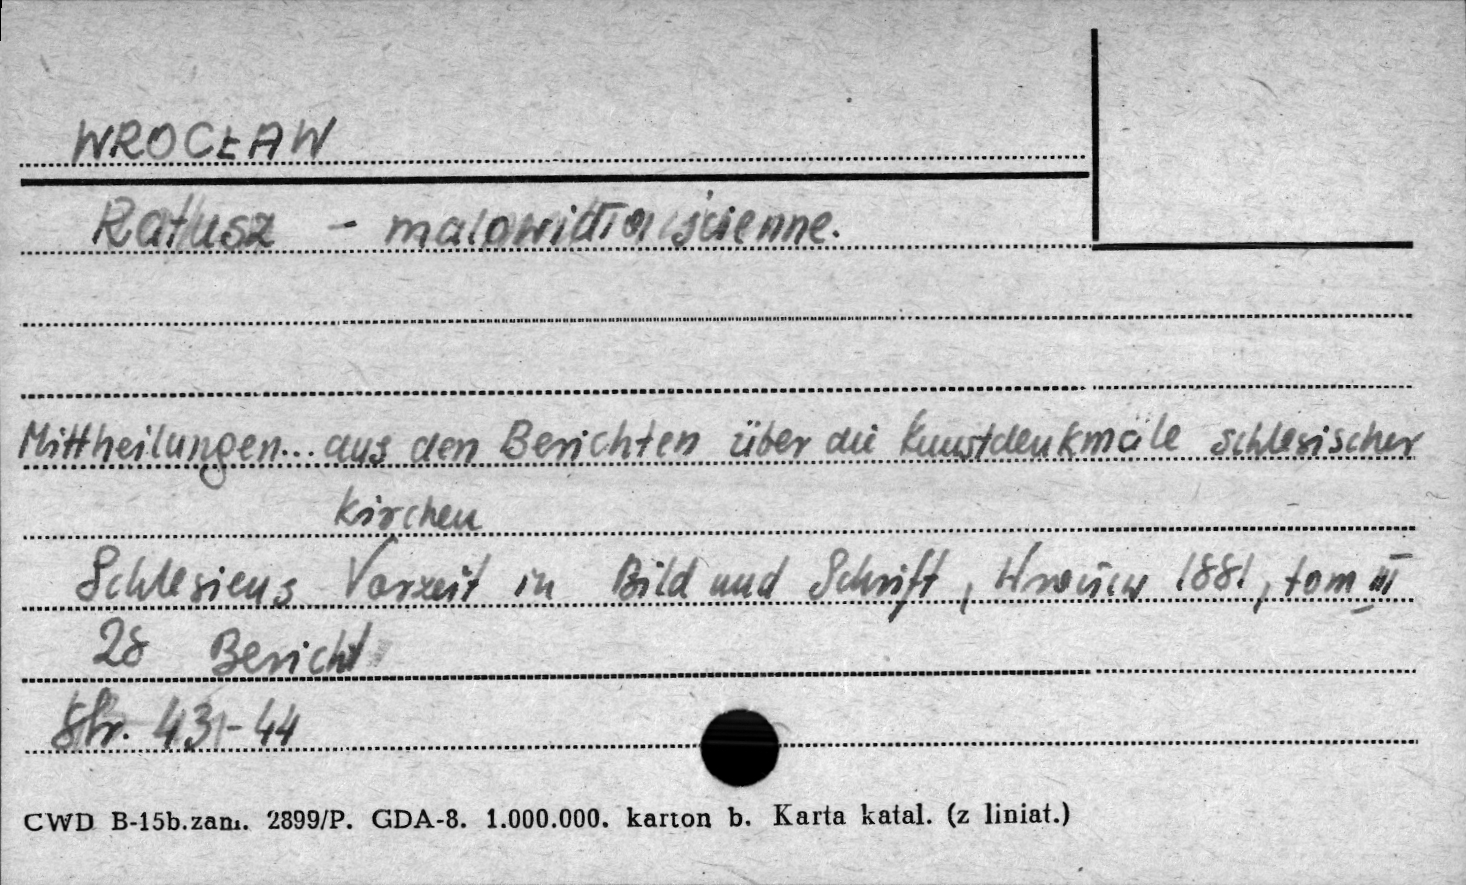 WROCŁAW
Ratusz - malowidła ścienne.
Mittheilungen... aus den Berichten über die Kunstdenkmäle schlesischer
Kirchen
Schlesiens Vorzeit in Bild und Schrift, 1881, tom III
28 Bericht
Str. 431-44
CWD B-15b.zam. 2899/P. GDA-8. 1.000.000. karton b. Karta katal. (z liniat.)